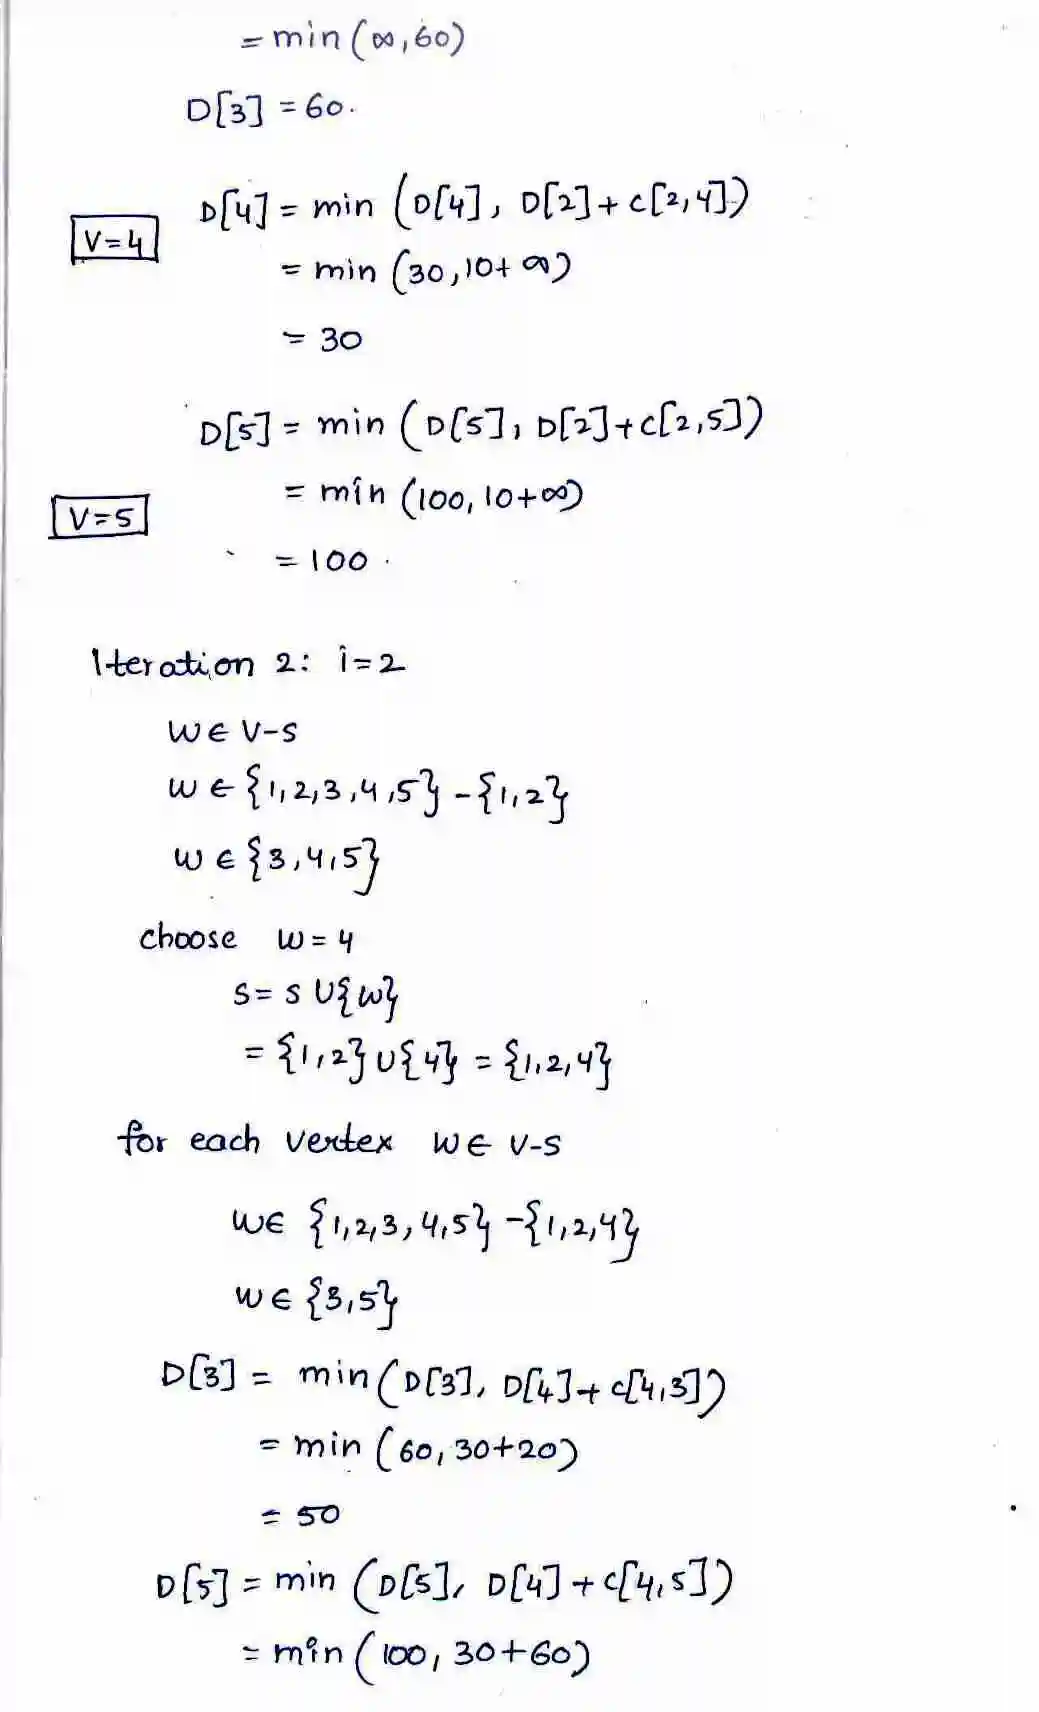 = min (∞, 60)
D[3] = 60.
D[4] = min (D[4], D[2] + C[2,4])
V=4
= min (30, 10+ ∞)
= 30
D[5] = min (D[5], D[2]+C[2,5])
= min (100, 10+∞)
V=5
= 100.
Iteration 2: i=2
W∈ V-S
W ∈ {1,2,3,4,5} - {1,2}
W ∈ {3,4,5}
choose W = 4
S = S U {W}
= {1,2} U {4} = {1,2,4}
for each vertex W∈ V-S
W∈ {1,2,3,4,5} - {1,2,4}
W∈ {3,5}
D[3] = min (D[3], D[4]+ C[4,3])
= min (60, 30+20)
= 50
D[5] = min (D[5], D[4] + C[4,5])
= min (100, 30+60)